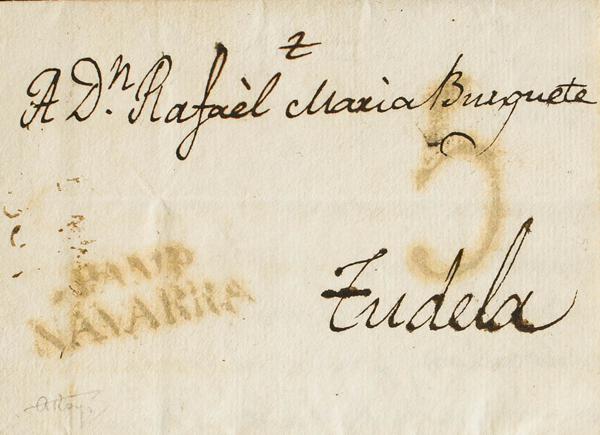 A D.ⁿ Rafaèl Maria Burguete
5
Tudela
PAMP
NAVARRA